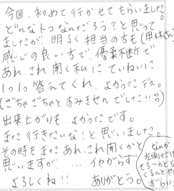 今回、初めて行かせてもらいました。
どんなトコなんだろう?と思って
ましたが明るく担当の方も(男性さん)
感じの良い方で、優柔不断で
あれこれ聞く私にていねいに
1つ1つ答えてくれ、ようかったデス。
(ごちゃごちゃとすみませんでした!!)
出来上がりも ようかったです。
また行きたいな!と思いました。
その時もまたあれこれ聞くかと
思いますが… イヤがらず
よろしくね!! ありがとう。
なんか